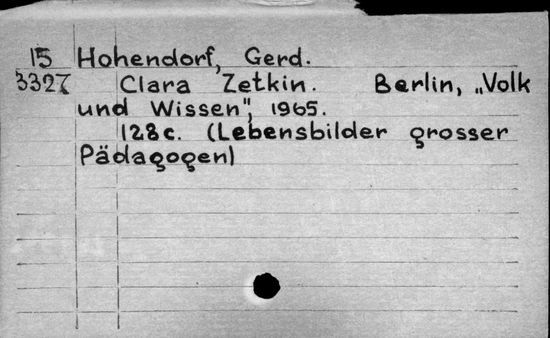 15 Hohendorf, Gerd.
3327 Clara Zetkin. Berlin, „Volk
und Wissen", 1965.
128c. (Lebensbilder grosser
Pädagogen)